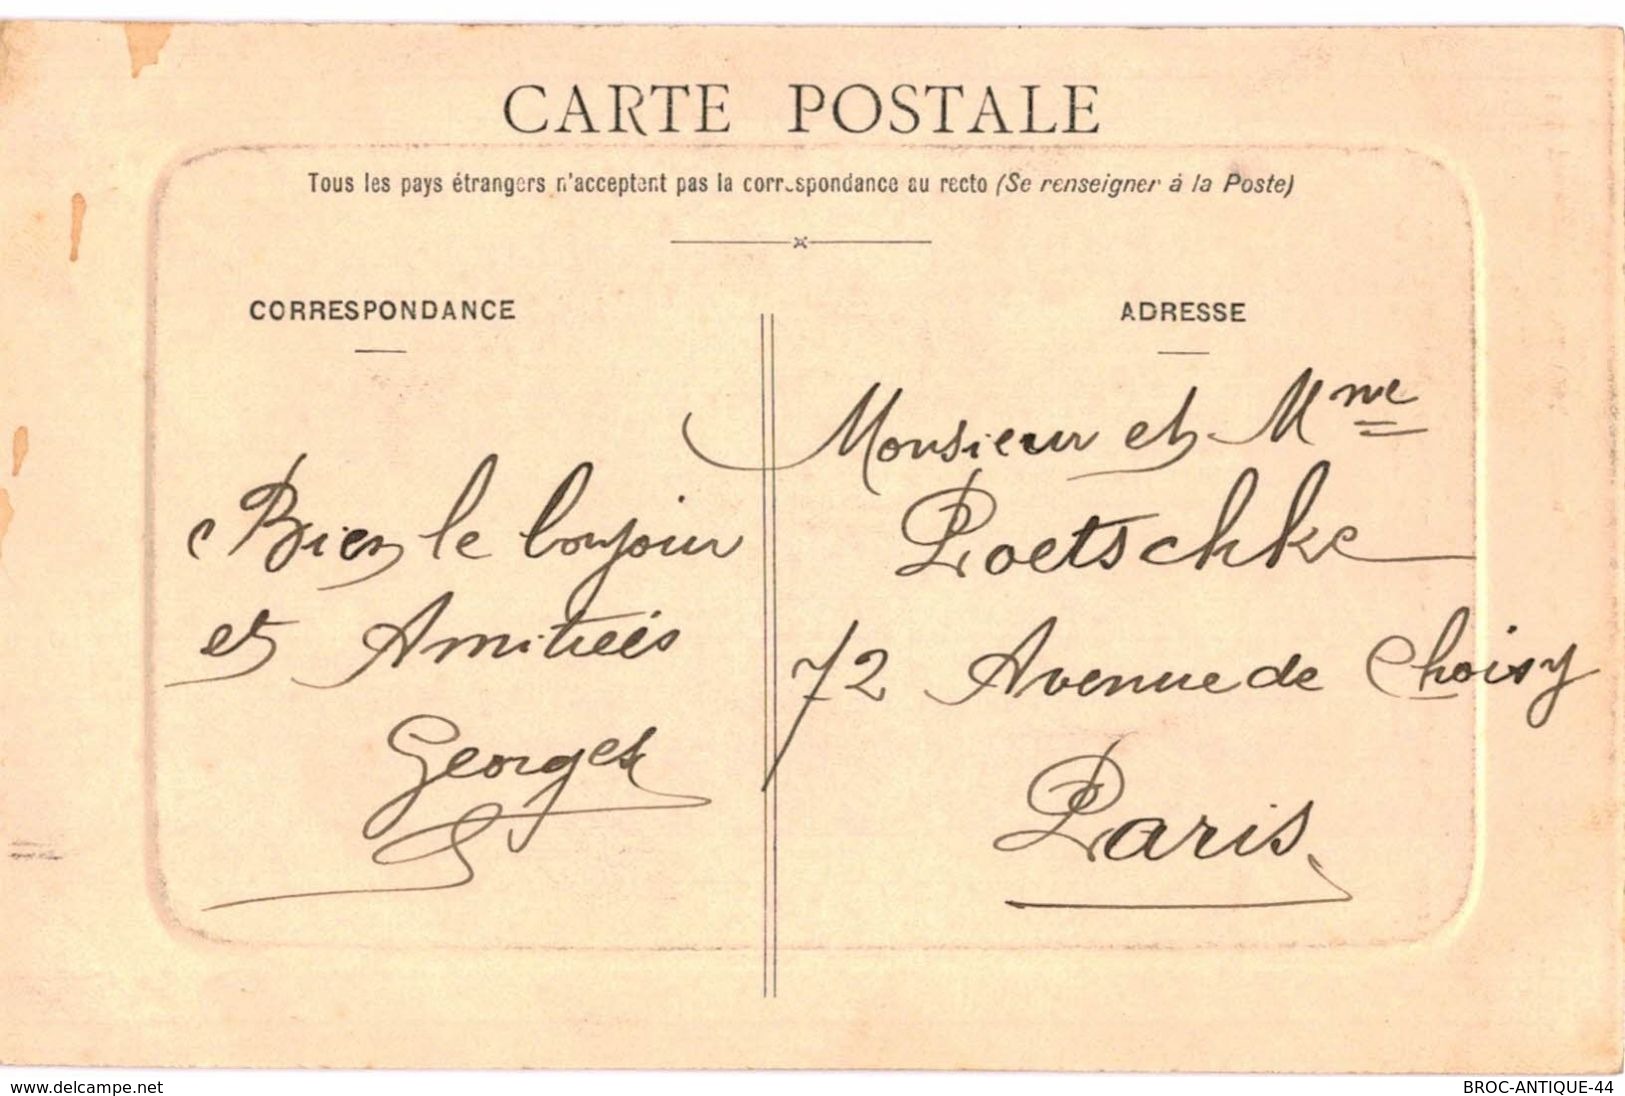 CARTE POSTALE
Tous les pays étrangers n'acceptent pas la correspondance au recto (Se renseigner à la Poste)
CORRESPONDANCE
Bien le bonjour
et Amitiées
Georges
ADRESSE
Monsieur et Mme
Poetschke
72 Avenue de Choisy
Paris
www.delcampe.net
BROC-ANTIQUE-44